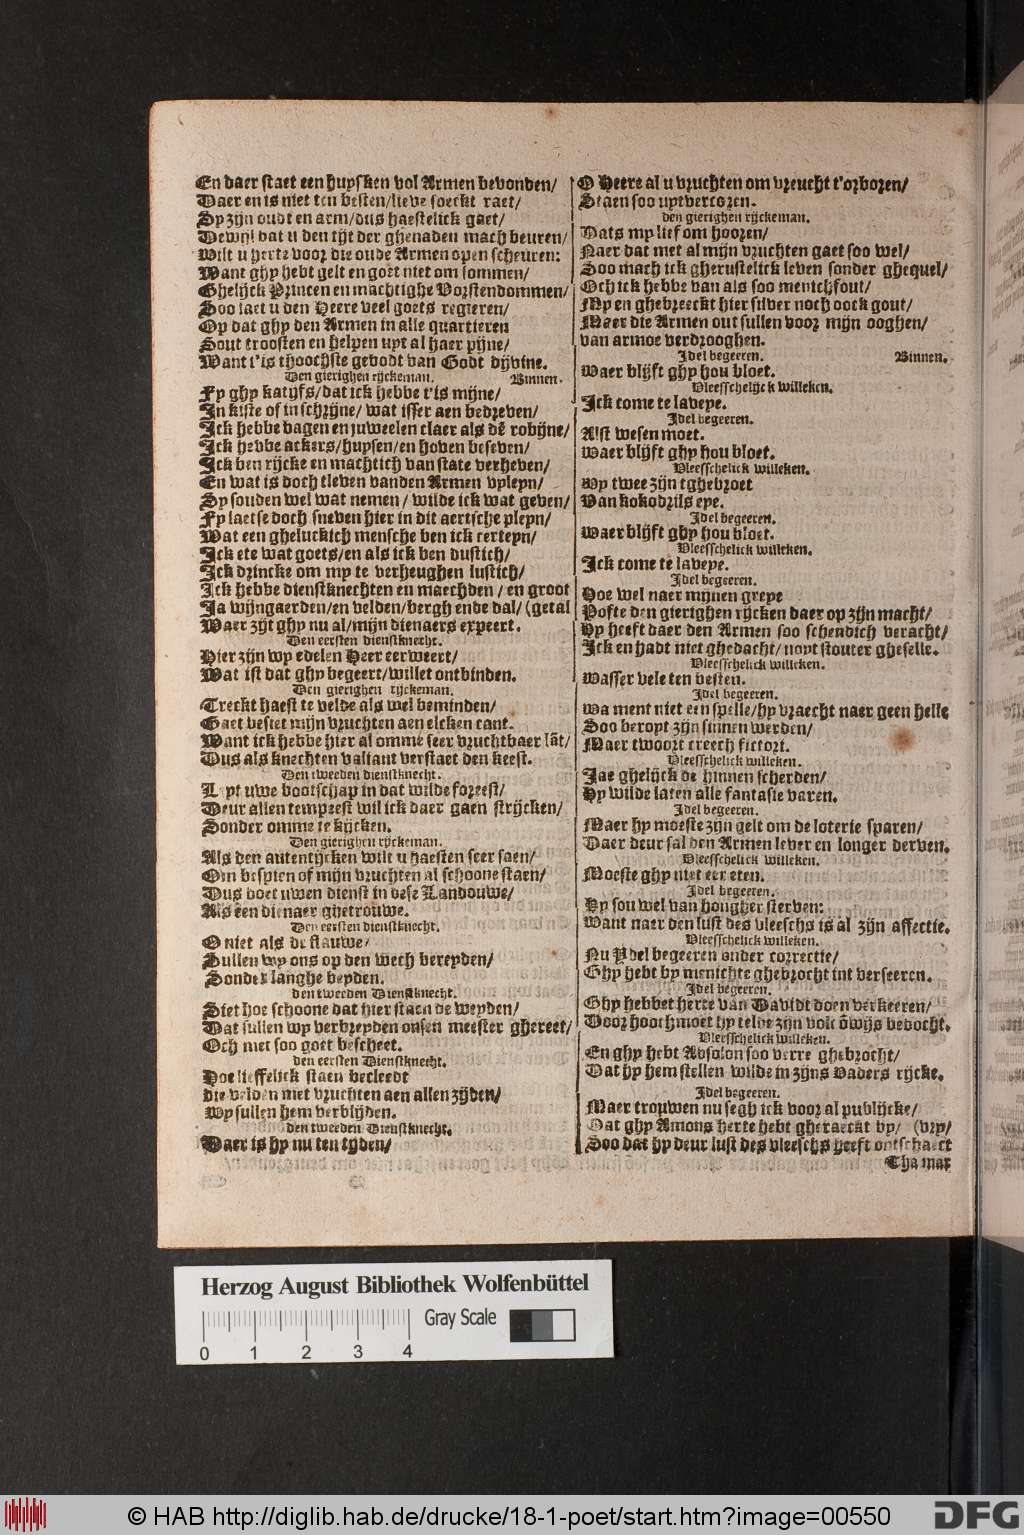 En daer staet een huysken vol Armen bevonden/
Daer en is niet ten besten/lieve soeckt raet/
Sy zijn oudt en arm/dus haestelick gaet/
Dewijl dat u den tijt der ghenaden mach beuren/
Wilt u herte voor die oude Armen open scheuren:
Want ghy hebt gelt en goet niet om sommen/
Ghelijck Princen en machtighe Vorstendommen/
Soo laet u den Heere veel goets regieren/
Op dat ghy den Armen in alle quartieren
Sout troosten en helpen uyt al haer pijne/
Want t'is thoochste gebodt van Godt dyvine.
Den gierighen rijckeman. Binnen.
Fy ghy katijfs/dat ick hebbe t'is mijne/
In kiste of in schrijne/ wat isser aen bedreven/
Ick hebbe bagen en juweelen claer als dē robijne/
Ick hebbe ackers/huysen/en hoven beseven/
Ick ben rijcke en machtich van state verheven/
En wat is doch tleven vanden Armen vyleyn/
Sy souden wel wat nemen/ wilde ick wat geven/
Fy laetse doch sneven hier in dit aertsche pleyn/
Wat een gheluckich mensche ben ick certeyn/
Ick ete wat goets/en als ick ben dustich/
Ick drincke om my te verheughen lustich/
Ick hebbe dienstknechten en maechden/ en groot
Ja wijngaerden/en velden/bergh ende dal/ (getal
Waer zijt ghy nu al/mijn dienaers expeert.
Den eersten dienstknecht.
Hier zijn wy edelen Heer eerweert/
Wat ist dat ghy begeert/willet ontbinden.
Den gierighen rijckeman.
Treckt haest te velde als wel beminden/
Gaet besiet mijn vruchten aen elcken cant.
Want ick hebbe hier al omme seer vruchtbaer lāt/
Dus als knechten valiant verstaet den keest.
Den tweeden dienstknecht.
Uyt uwe bootschap in dat wilde foreest/
Deur allen tempeest wil ick daer gaen strijcken/
Sonder omme te kijcken.
Den gierighen rijckeman.
Als den autentijcken wilt u haesten seer saen/
Om bespien of mijn vruchten al schoone staen/
Dus doet uwen dienst in dese Landouwe/
Als een dienaer ghetrouwe.
Den eersten dienstknecht.
O niet als de flauwe/
Sullen wy ons op den wech bereyden/
Sonder langhe beyden.
den tweeden Dienstknecht.
Siet hoe schoone dat hier staen de weyden/
Dat sullen wy verbreyden onsen meester ghereet/
Och niet soo goet bescheet.
den eersten Dienstknecht.
Hoe lieffelick staen becleedt
die velden met vruchten aen allen zijden/
Wy sullen hem verblijden.
den tweeden Dienstknecht.
Daer is hy nu ten tyden/
O Heere al u vruchten om vreucht t'orboren/
Staen soo uytvercoren.
den gierighen rijckeman.
Dats my lief om hooren/
Naer dat met al mijn vruchten gaet soo wel/
Soo mach ick gherustelick leven sonder ghequel/
Och ick hebbe van als soo menichfout/
My en ghebreeckt hier silver noch oock gout/
Meer die Armen out sullen voor mijn ooghen/
van armoe verdrooghen.
Idel begeeren. Binnen.
Waer blijft ghy hou bloet.
Vleesschelijck willeken.
Ick come te lavepe.
Idel begeeren.
Alst wesen moet.
Waer blijft ghy hou bloet.
Vleesschelick willeken.
Wy twee zijn tghebroet
Van kokodrils eye.
Idel begeeren.
Waer blijft ghy hou bloet.
Vleesschelick willeken.
Ick come te lavepe.
Idel begeeren.
Hoe wel naer mijnen grepe
Pofte den gierighen rijcken daer op zijn macht/
Hy heeft daer den Armen soo schendich veracht/
Ick en hadt niet ghedacht/ noyt stouter gheselle.
Vleesschelick willeken.
Wasser vele ten besten.
Idel begeeren.
Wa ment niet een spelle/hy vraecht naer geen helle
Soo beroyt zijn sinnen werden/
Maer twoort creech fictori.
Vleesschelick willeken.
Jae ghelijck de hinnen scherden/
Hy wilde laten alle fantasie varen.
Idel begeeren.
Maer hy moeste zijn gelt om de loterie sparen/
Daer deur sal den Armen lever en longer derven.
Vleesschelick willeken.
Moeste ghy niet eer eten.
Idel begeeren.
Hy sou wel van hongher sterven:
Want naer den lust des vleeschs is al zijn affectie.
Vleesschelick willeken.
Nu Ydel begeeren onder correctie/
Ghy hebt by menichte ghebrocht int verseeren.
Idel begeeren.
Ghy hebbet herte van Davidt doen verkeeren/
Door hoochmoet hy telde zijn volc ōwijs bedocht.
Vleesschelick willeken.
En ghy hebt Absolon soo verre ghebrocht/
Dat hy hem stellen wilde in zijns Vaders rijcke.
Idel begeeren.
Maer trouwen nu segh ick voor al publijcke/
Dat ghy Amons herte hebt gheraeckt by/ (vry/
Soo dat hy deur lust des vleeschs heeft ontschaect
Thamar
Herzog August Bibliothek Wolfenbüttel
Gray Scale
0 1 2 3 4
© HAB http://diglib.hab.de/drucke/18-1-poet/start.htm?image=00550
DFG